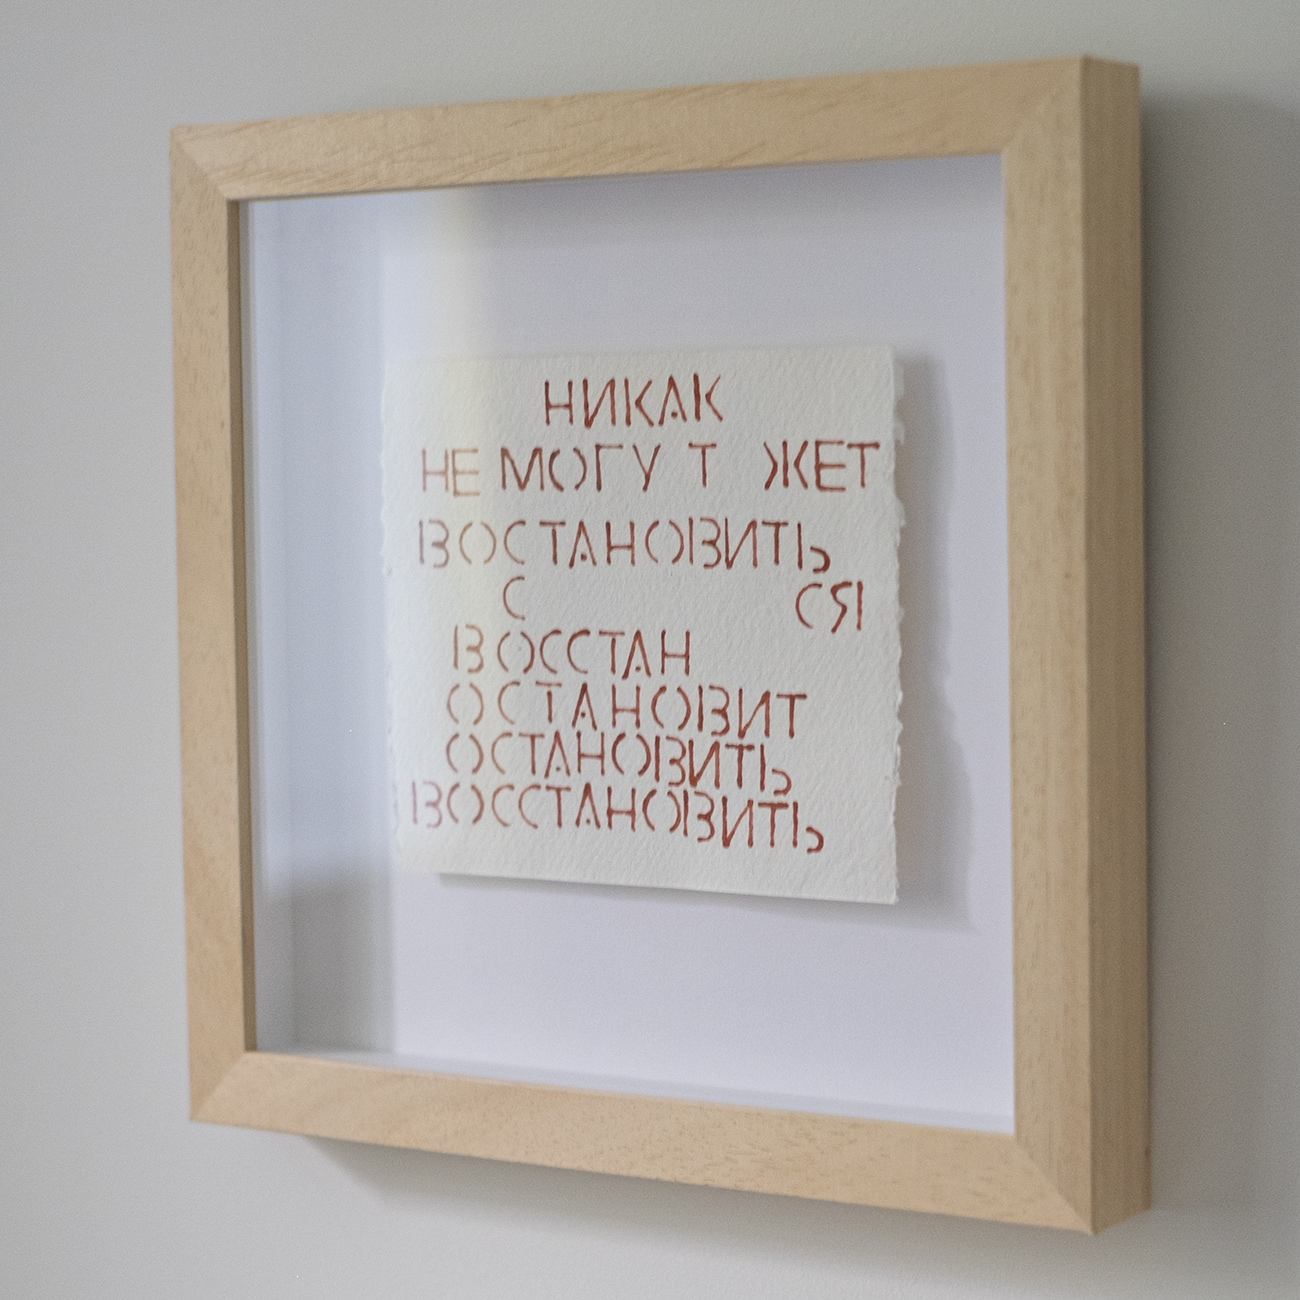 НИКАК
НЕ МОГУ Т ЖЕТ
ВОСТАНОВИТЬ
С СЯ
ВОССТАН
ОСТАНОВИТ
ОСТАНОВИТЬ
ВОССТАНОВИТЬ